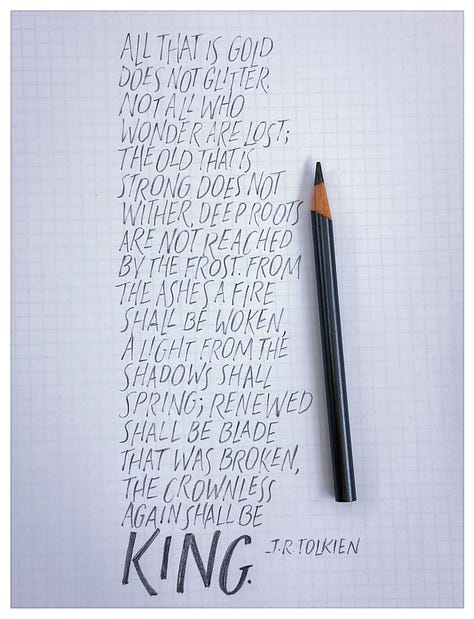 ALL THAT IS GOLD
DOES NOT GLITTER.
NOT ALL WHO
WONDER ARE LOST;
THE OLD THAT IS
STRONG DOES NOT
WITHER, DEEP ROOTS
ARE NOT REACHED
BY THE FROST. FROM
THE ASHES A FIRE
SHALL BE WOKEN,
A LIGHT FROM THE
SHADOWS SHALL
SPRING; RENEWED
SHALL BE BLADE
THAT WAS BROKEN,
THE CROWNLESS
AGAIN SHALL BE
KING. _J.R.TOLKIEN